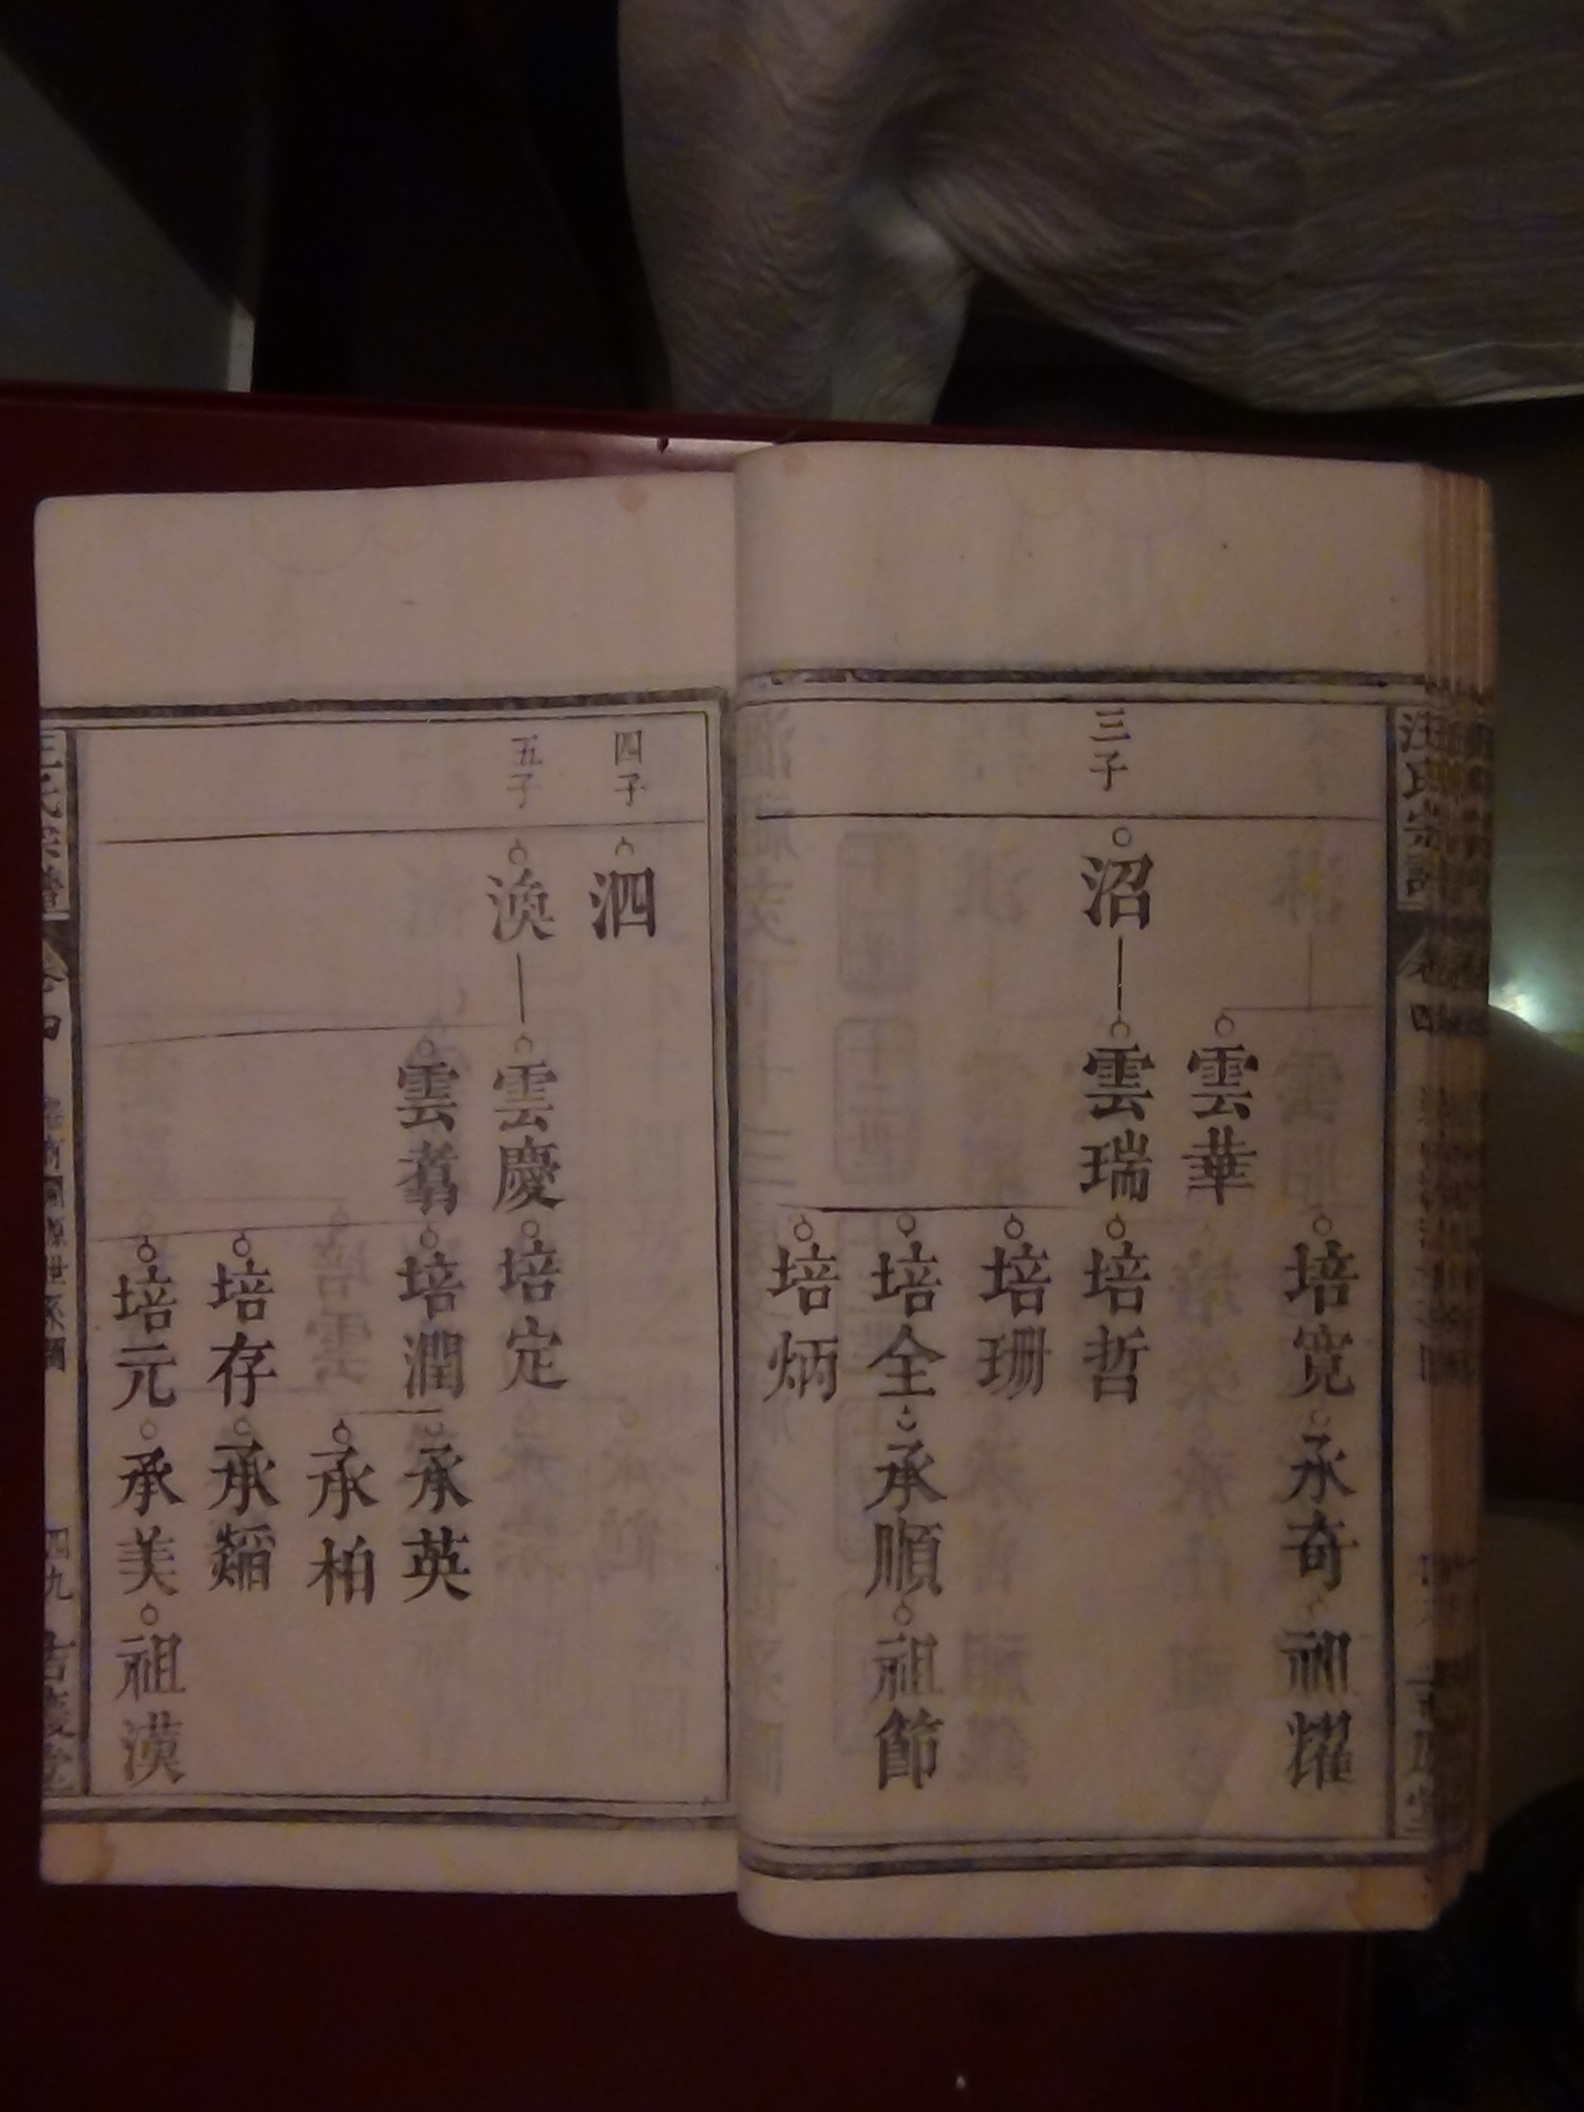 汪氏宗譜
卷四
培寬
承奇
祖燿
雲華
三子
沼
雲瑞
培哲
培珊
培全
承順
祖節
培炳
四子
泗
五子
渙
雲慶
培定
雲
培潤
承英
承柏
培存
承
培元
承美
祖漠
氏宗譜
卷四
源世系圖
四九